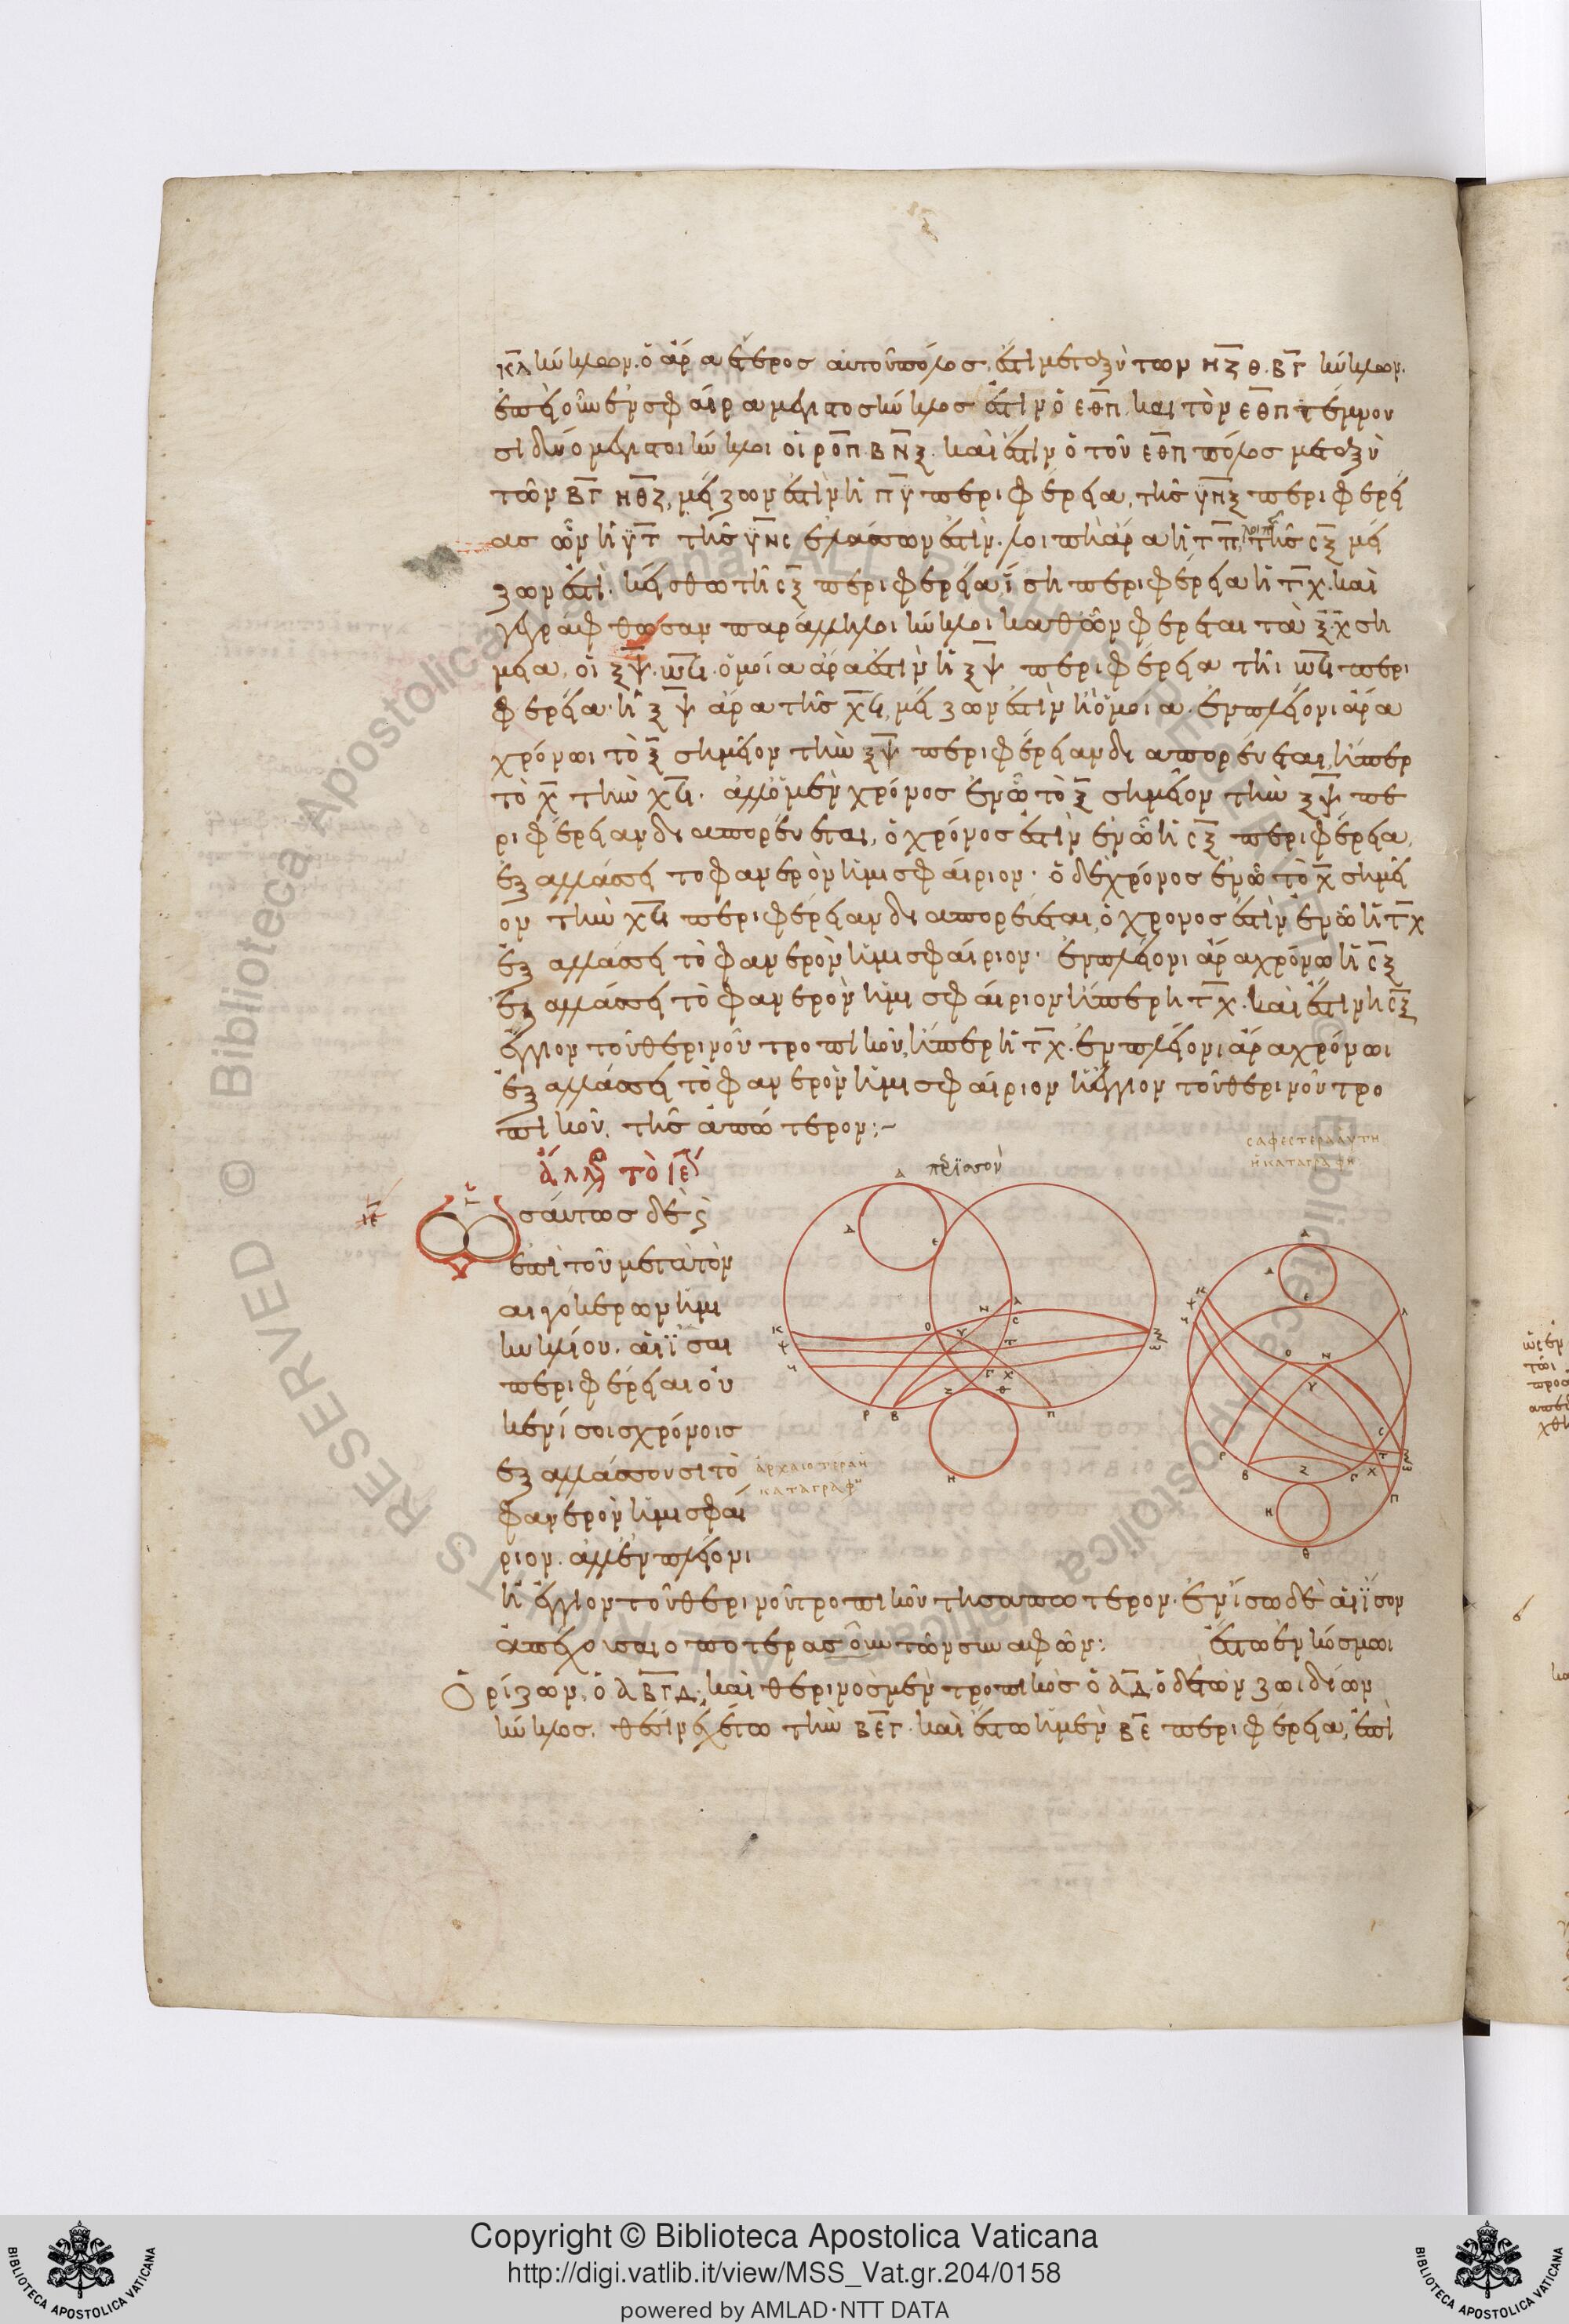 ΚΛ κύκλων. ὁ ἄρα ἕτερος αὐτοῦ πόλος, ἐστὶ μεταξὺ τῶν ΗΖΘ. ΒΓ κύκλων.
ἐπεὶ οὖν ἐν σφαίρα μέγιστος κύκλος ἐστὶν ὁ ΕΘΠ, καὶ τὸν ΕΘΠ τέμνου
σι δύο μέγιστοι κύκλοι οἱ ΡΟΠ. ΒΝΞ. καὶ ἐστὶν ὁ τοῦ ΕΘΠ πόλος μεταξὺ
τῶν ΒΓ ΗΘΖ, μείζων ἐστὶν ἡ ΠΥ περιφέρεια, τῆς ΥΞ περιφερεί
ας ὧν ἡ ΥΤ τῆς ΥΝϹ ἐλάσσων ἐστίν. λοιπὴ ἄρα ἡ ΤΠ, λοιπῆς τῆς ϹΞ μεί
ζων ἐστί. κείσθω τῆ ϹΞ περιφερεία, ἴση περιφέρεια ἡ ΤΧ. καὶ
γεγράφθωσαν παράλληλοι κύκλοι καθ' ὧν φέρεται τὰ ΞΧ ση
μεῖα, οἱ ΞΨ. ΩϤ. ὁμοία ἄρα ἐστὶν ἡ ΞΨ περιφέρεια τῆι ΩϤ περι
φερεία. ἡ ΞΨ ἄρα τῆς ΧϤ, μείζων ἐστὶν ἢ ὁμοία. ἐν πλείονι ἄρα
χρόνωι τὸ Ξ σημεῖον τὴν ΞΨ περιφέρειαν διαπορεύεται, ἤπερ
τὸ Χ τὴν ΧϤ. ἀλλ' ὁ μὲν χρόνος ἐν ὧ τὸ Ξ σημεῖον τὴν ΞΨ πε
ριφέρειαν διαπορεύεται, ὁ χρόνος ἐστὶν ἐν ὧ ἡ ϹΞ περιφέρεια,
ἐξαλλάσσει τὸ φανερὸν ἡμισφαίριον. ὁ δὲ χρόνος ἐν ὧ τὸ Χ σημεῖ
ον τὴν ΧϤ περιφέρειαν διαπορεύεται, ὁ χρόνος ἐστὶν ἐν ὧ ἡ ΤΧ
ἐξαλλάσσει τὸ φανερὸν ἡμισφαίριον. ἐν πλείονι ἄρα χρόνω ἡ ϹΞ
ἐξαλλάσσει τὸ φανερὸν ἡμισφαίριον ἤπερ ἡ ΤΧ. καὶ ἐστὶν ἡ ϹΞ
ἔγγιον τοῦ θερινοῦ τροπικοῦ, ἤπερ ἡ ΤΧ. ἐν πλείονι ἄρα χρόνωι
ἐξαλλάσσει τὸ φανερὸν ἡμισφαίριον ἡ ἔγγιον τοῦ θερινοῦ τρο
πικοῦ, τῆς ἀπώτερον:~
ἄλλως τὸ ιε
σαφεστέρα αὕτη
ἡ καταγραφή
ιϛ
Ὡσαύτως δὲ
ἐπὶ τοῦ μετὰ τὸν
αἰγόκερων ἡμι
κυκλίου. αἱ ἴσαι
περιφέρειαι οὐ
κ ἐν ἴσοις χρόνοις
ἐξαλλάσσουσι τὸ
φανερὸν ἡμισφαί
ριον. ἀλλ' ἐν πλείονι
ἀρχαιοτέρα ἡ
καταγραφή
ἡ ἔγγιον τοῦ θερινοῦ τροπικοῦ τῆς ἀπώτερον. ἐν ἴσω δὲ αἱ ἴσον
ἀπέχουσαι ὁποτερασοῦν τῶν συναφῶν: ἔστω ἐν κόσμωι
Ὁρίζων, ὁ ΑΒΓΔ. καὶ θερινὸς μὲν τροπικὸς ὁ ΑΔ. ὁ δὲ τῶν ζωιδίων
κύκλος, θέσιν ἐχέτω τὴν ΒΕΓ. καὶ ἔστω ἡ μὲν ΒΕ περιφέρεια, ἐπὶ
Copyright © Biblioteca Apostolica Vaticana
http://digi.vatlib.it/view/MSS_Vat.gr.204/0158
powered by AMLAD·NTT DATA